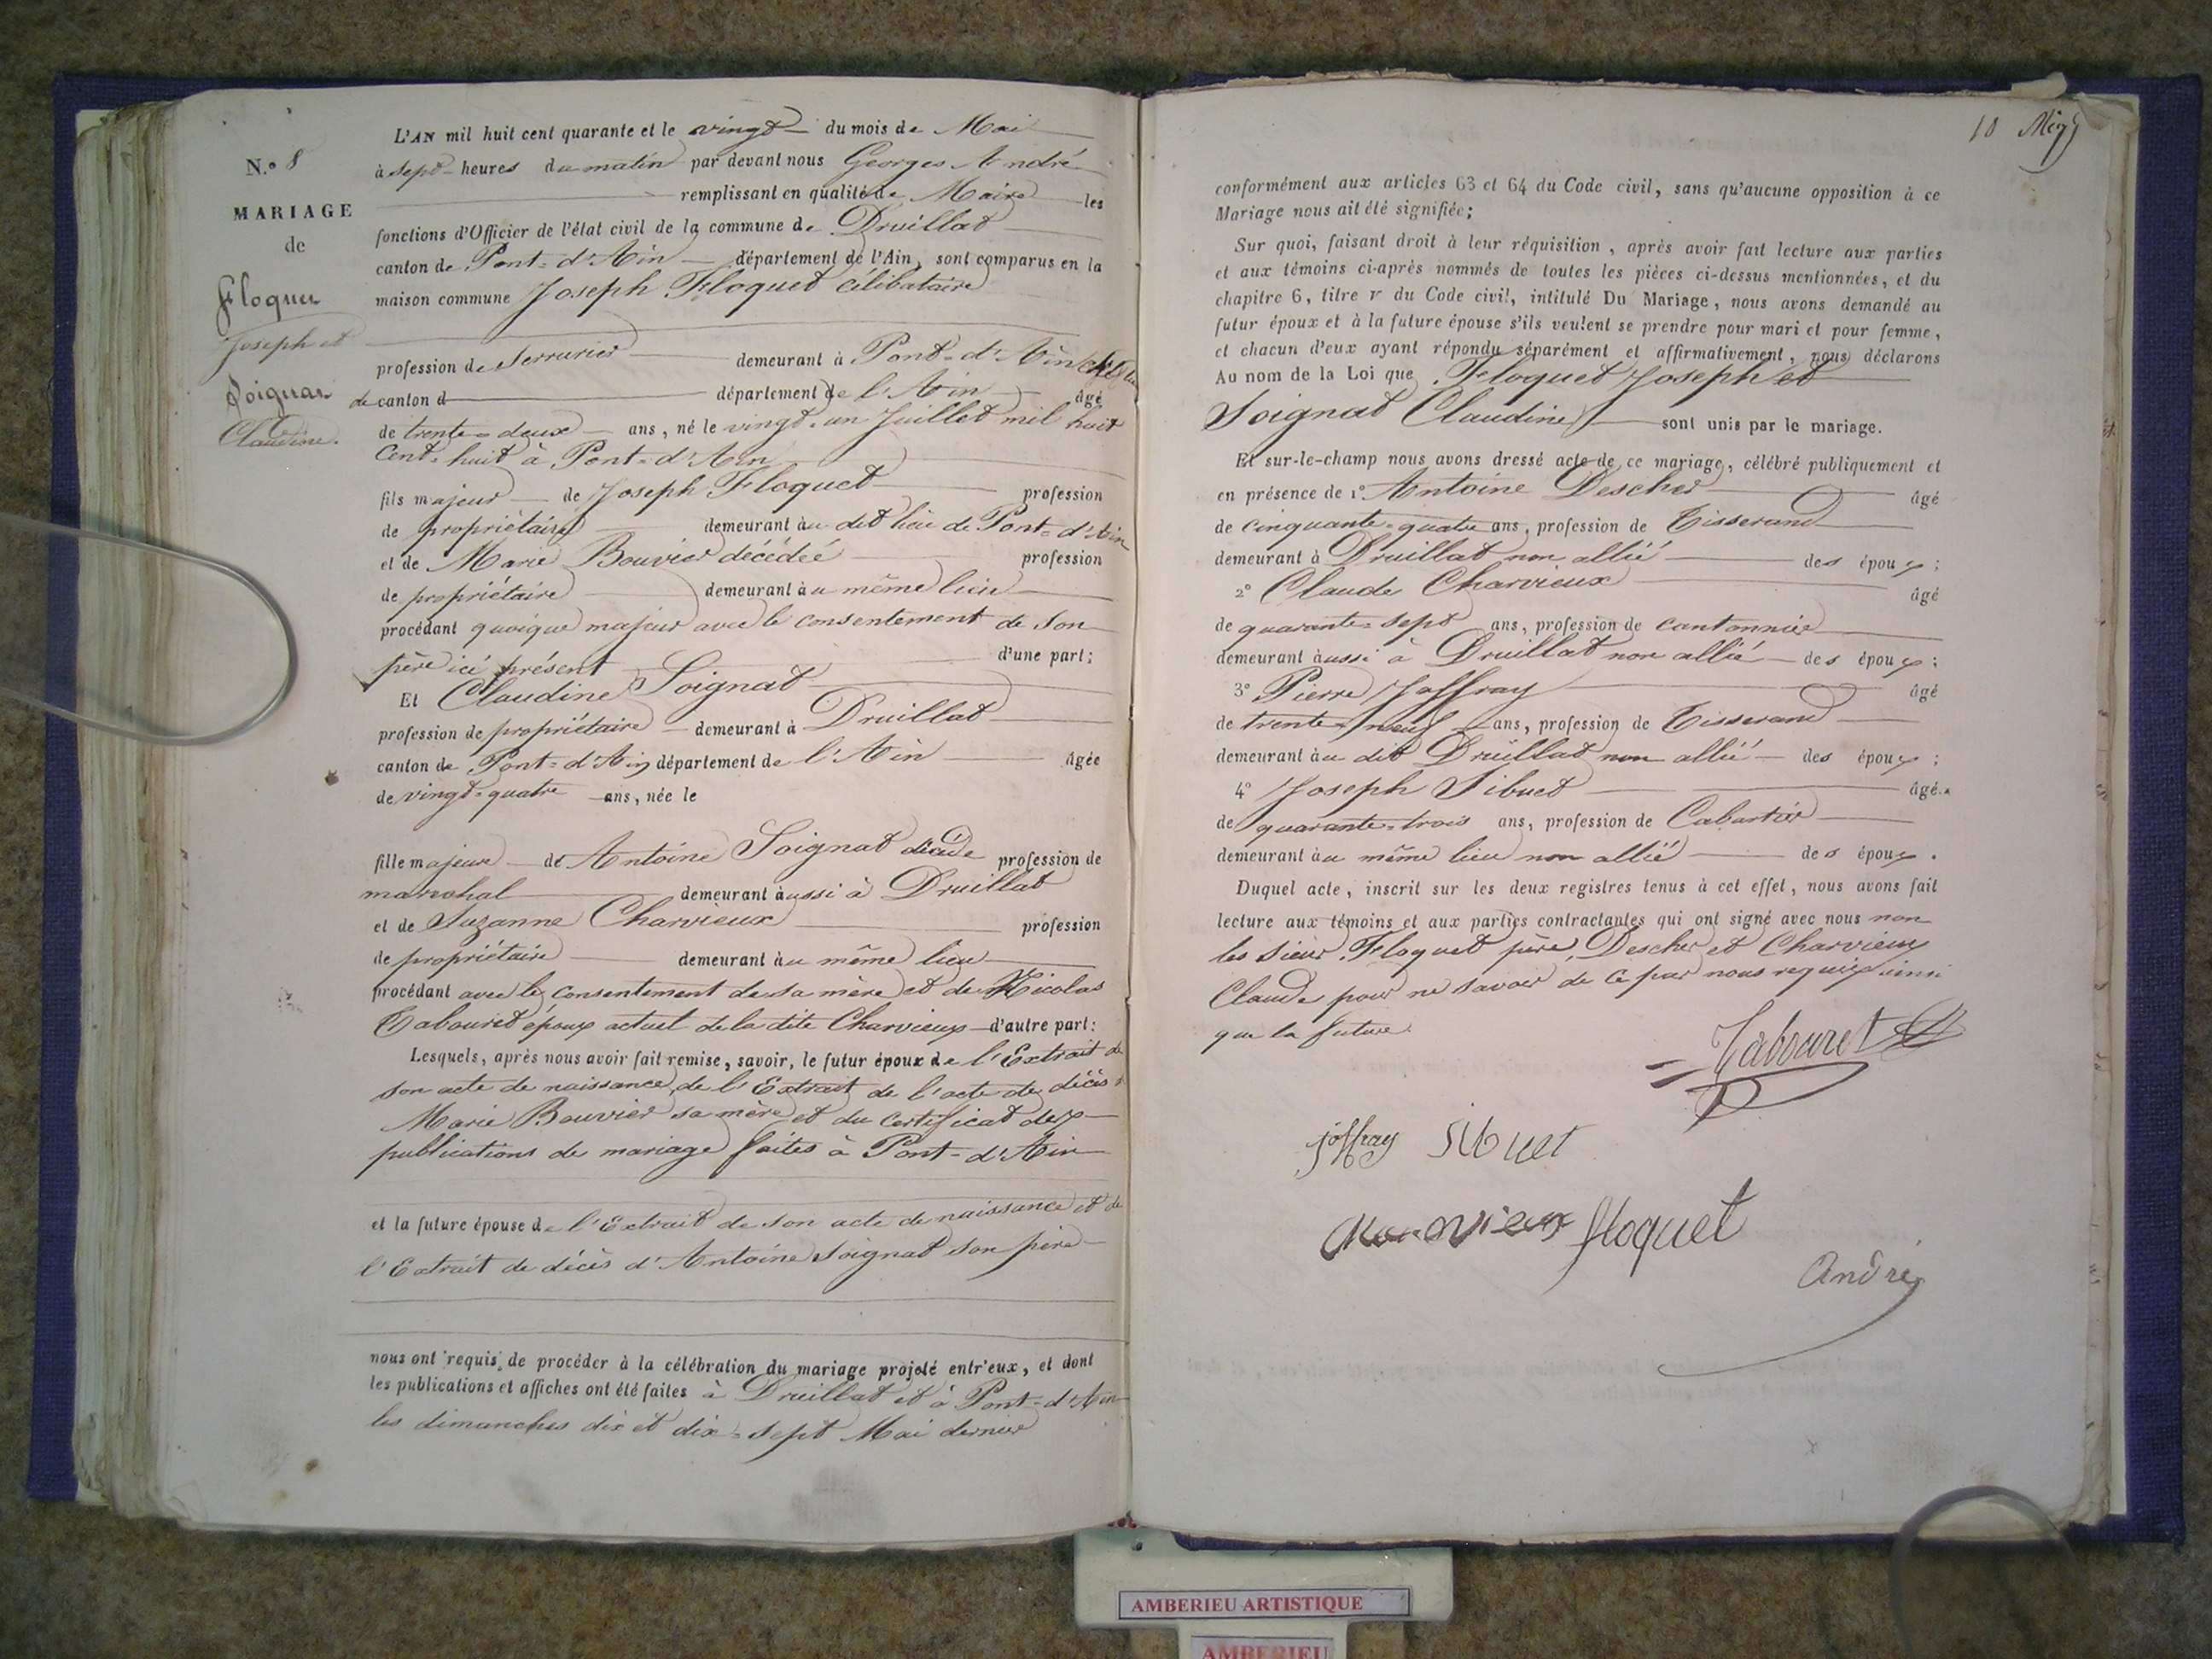 N.º 8
MARIAGE
de
Floquet
Joseph et
Soignat
Claudine.
L'AN mil huit cent quarante et le vingt du mois de Mai
à sept heures du matin par devant nous Georges André
remplissant en qualité de Maire les
fonctions d'Officier de l'état civil de la commune de Druillat
canton de Pont-d'Ain département de l'Ain, sont comparus en la
maison commune Joseph Floquet célibataire
profession de Serrurier demeurant à Pont-d'Ain
de canton d département de l'Ain âgé
de trente-deux ans, né le vingt-un Juillet mil huit
Cent-huit à Pont-d'Ain
fils majeur de Joseph Floquet profession
de propriétaire demeurant au dit lieu de Pont-d'Ain
et de Marie Bouvier décédée profession
de propriétaire demeurant au même lieu
procédant quoique majeur avec le consentement de son
père ici présent d'une part;
Et Claudine Soignat
profession de propriétaire demeurant à Druillat
canton de Pont-d'Ain département de l'Ain âgée
de vingt-quatre ans, née le
fille majeure de Antoine Soignat décédé profession de
maréchal demeurant aussi à Druillat
et de Suzanne Charvieux profession
de propriétaire demeurant au même lieu
procédant avec le consentement de sa mère et de Nicolas
Tabouret époux actuel de la dite Charvieux d'autre part:
Lesquels, après nous avoir fait remise, savoir, le futur époux de l'Extrait de
son acte de naissance, de l'Extrait de l'acte de décès d
Marie Bouvier sa mère et du certificat des
publications de mariage faites à Pont-d'Ain
et la future épouse de l'Extrait de son acte de naissance et de
l'Extrait de décès d'Antoine Soignat son père
nous ont requis de procéder à la célébration du mariage projeté entr'eux, et dont
les publications et affiches ont été faites à Druillat et à Pont-d'Ain
les dimanches dix et dix-sept Mai dernier
10
conformément aux articles 63 et 64 du Code civil, sans qu'aucune opposition à ce
Mariage nous ait été signifiée;
Sur quoi, faisant droit à leur réquisition, après avoir fait lecture aux parties
et aux témoins ci-après nommés de toutes les pièces ci-dessus mentionnées, et du
chapitre 6, titre v du Code civil, intitulé Du Mariage, nous avons demandé au
futur époux et à la future épouse s'ils veulent se prendre pour mari et pour femme,
et chacun d'eux ayant répondu séparément et affirmativement, nous déclarons
Au nom de la Loi que Floquet Joseph et
Soignat Claudine sont unis par le mariage.
Et sur-le-champ nous avons dressé acte de ce mariage, célébré publiquement et
en présence de 1º Antoine Descher âgé
de cinquante-quatre ans, profession de Tisserand
demeurant à Druillat non allié des époux;
2º Claude Charvieux âgé
de quarante-sept ans, profession de cantonnier
demeurant aussi à Druillat non allié des époux;
3º Pierre Joffray âgé
de trente-neuf ans, profession de Tisserand
demeurant au dit Druillat non allié des époux;
4º Joseph Sibuet âgé
de quarante-trois ans, profession de Cabartier
demeurant au même lieu non allié des époux.
Duquel acte, inscrit sur les deux registres tenus à cet effet, nous avons fait
lecture aux témoins et aux parties contractantes qui ont signé avec nous non
les sieurs Floquet père, Descher et Charvieux
Claude pour ne savoir de ce par nous requis ainsi
que la future.
Tabouret
joffray Sibuet
Charvieux floquet
André
AMBERIEU ARTISTIQUE
AMBERIEU